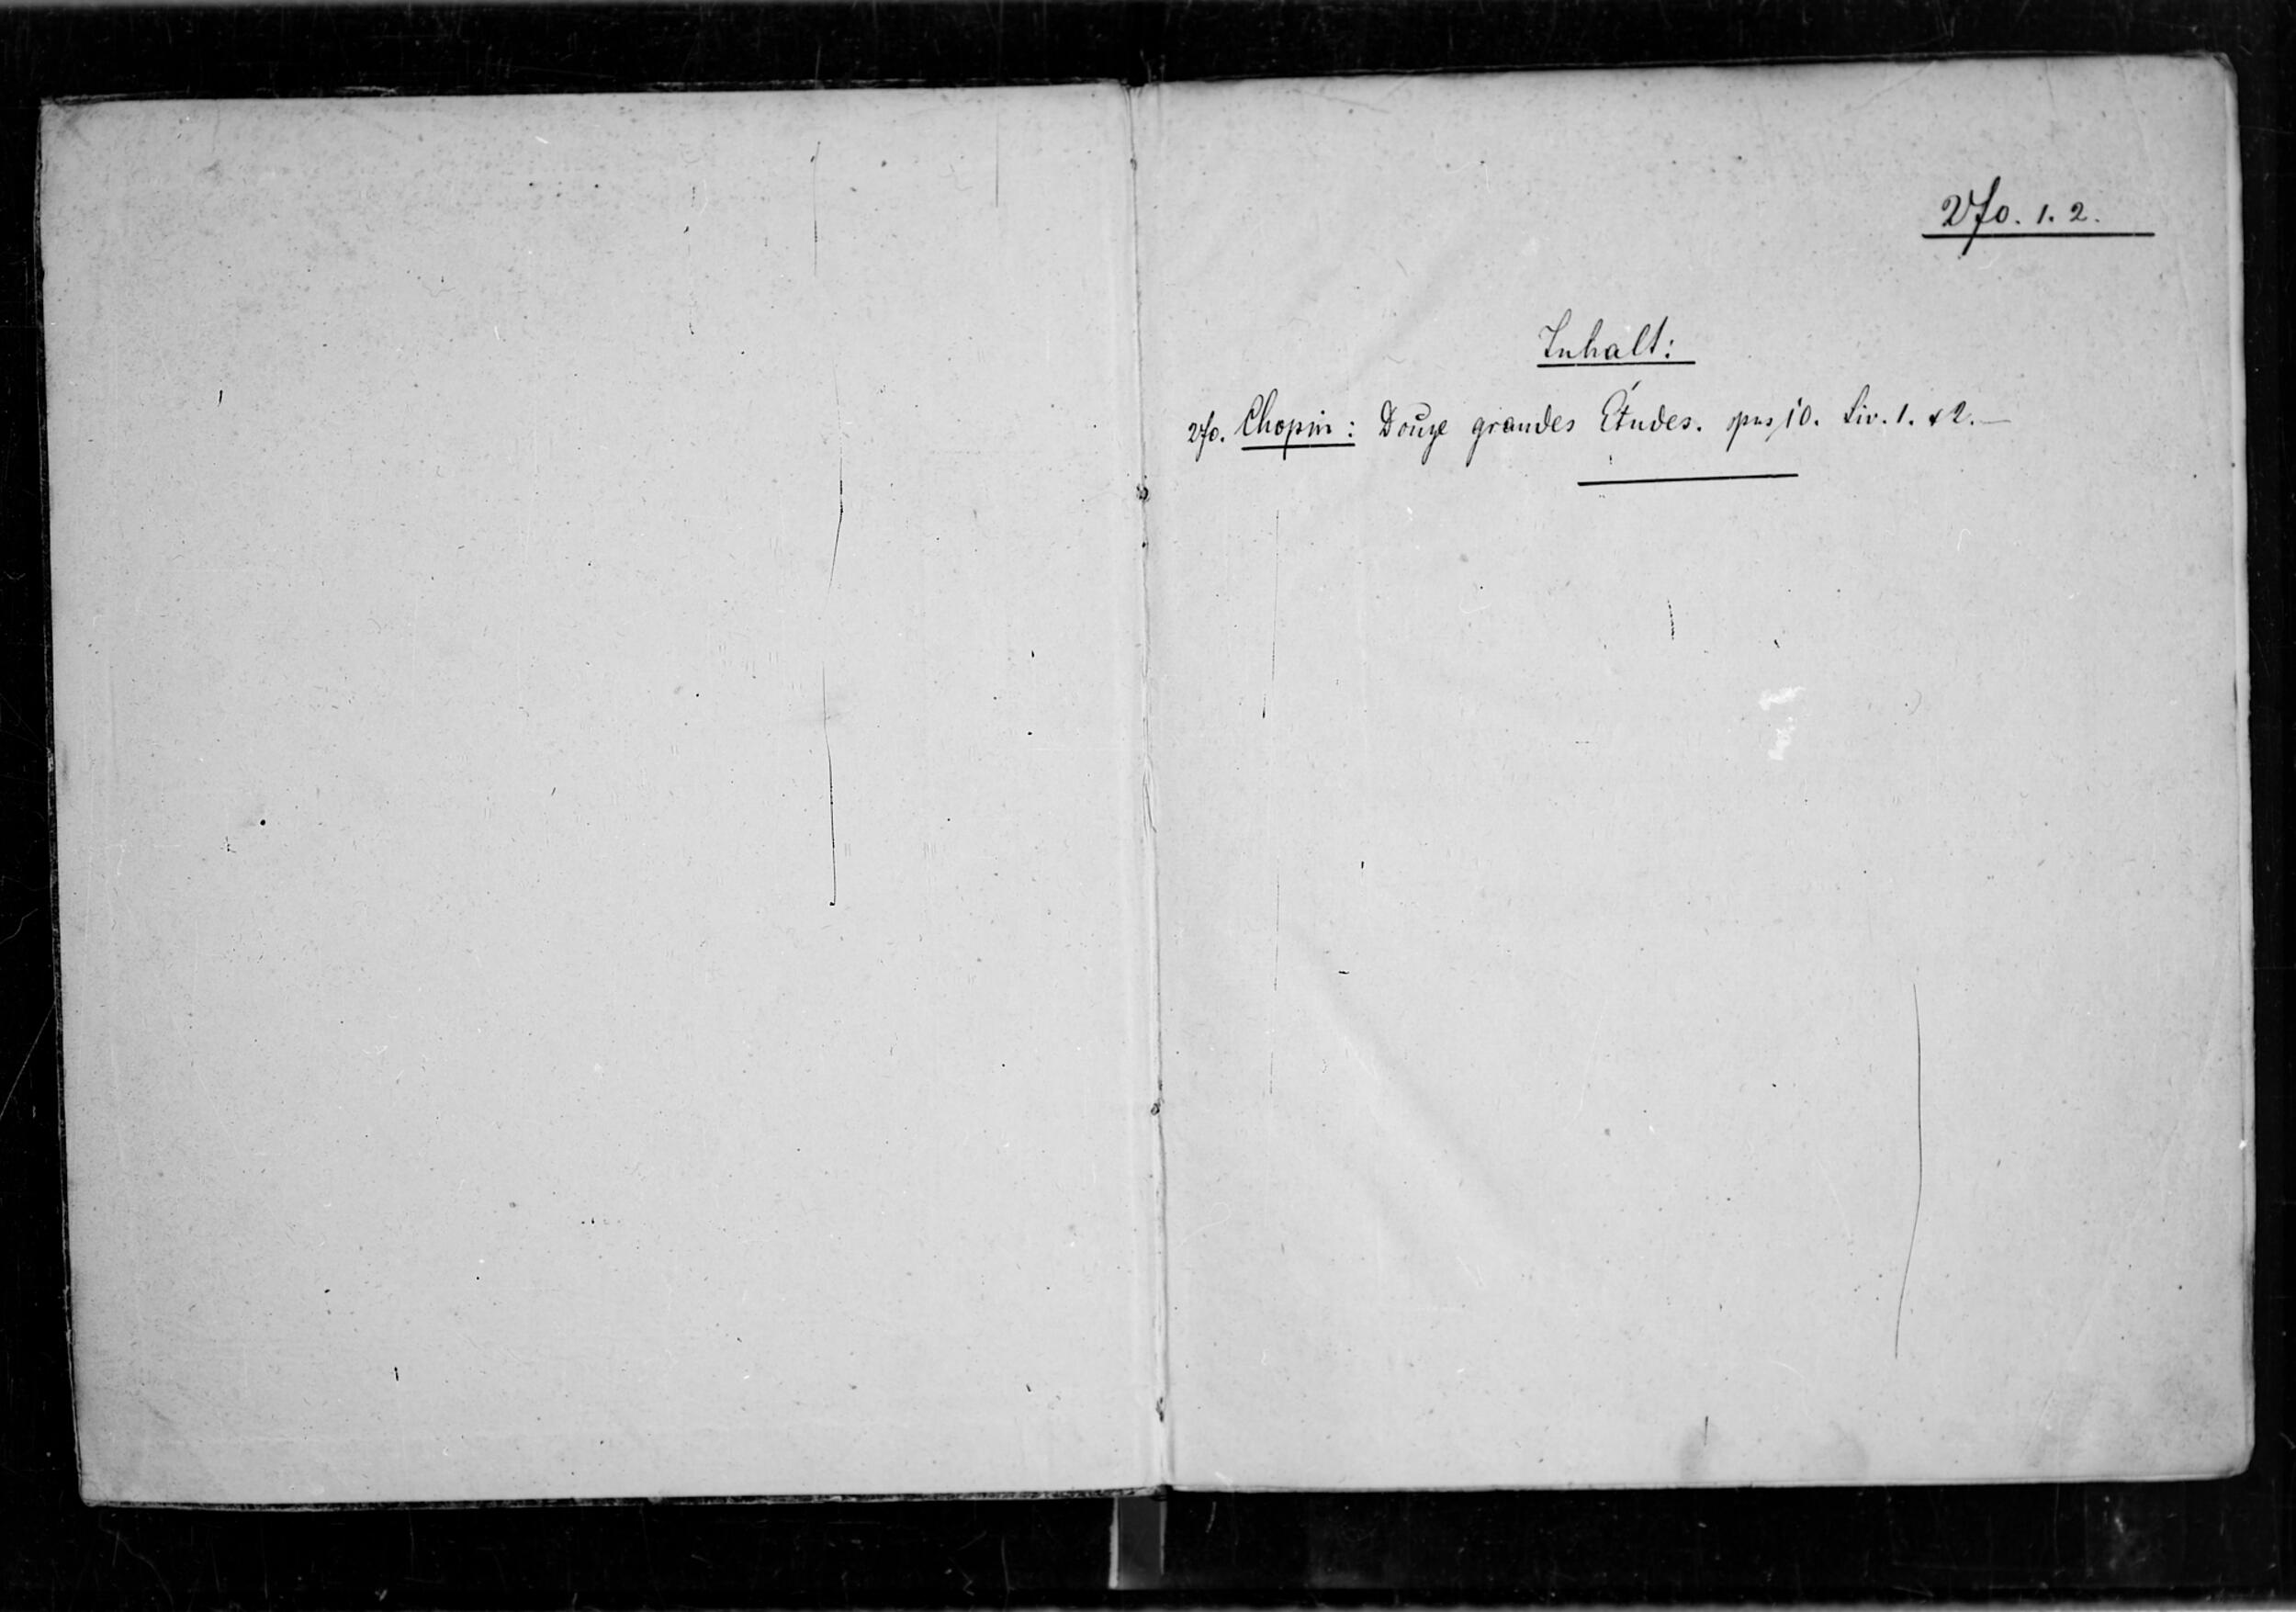 270. 1. 2.
Inhalt:
270. Chopin: Douze grandes Études. opus 10. Liv. 1. & 2. —